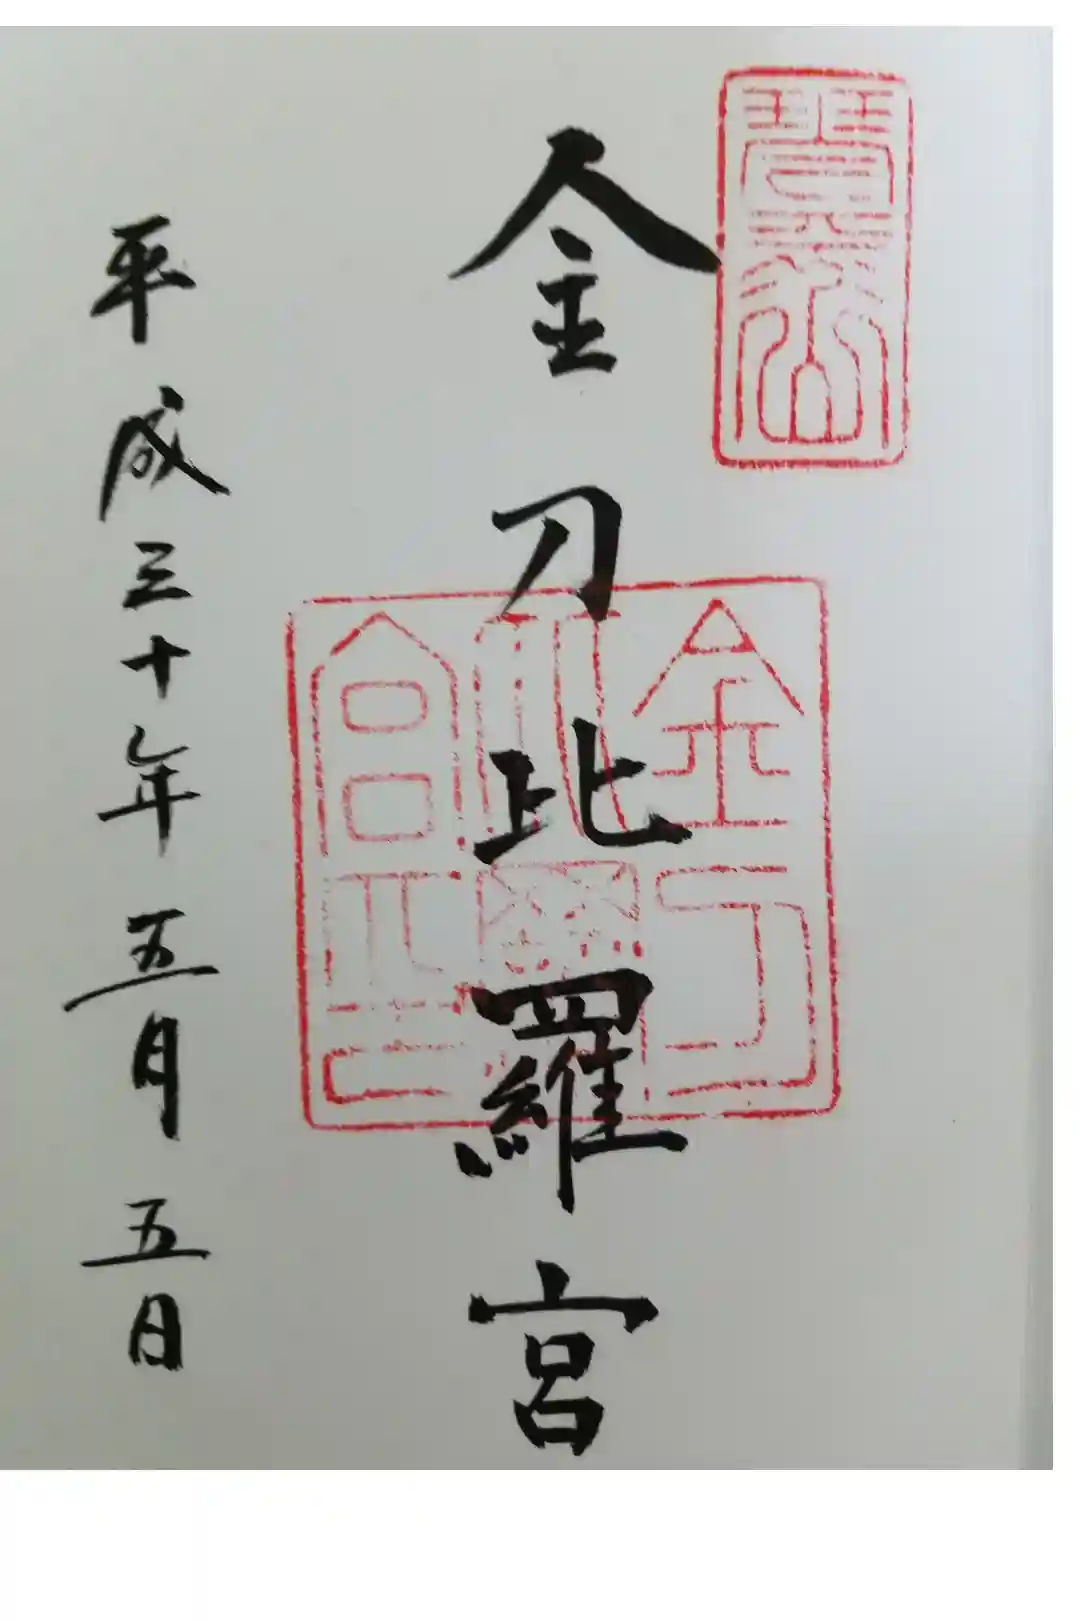 金刀比羅宮
金刀
比羅
宮印
平成三十年五月五日